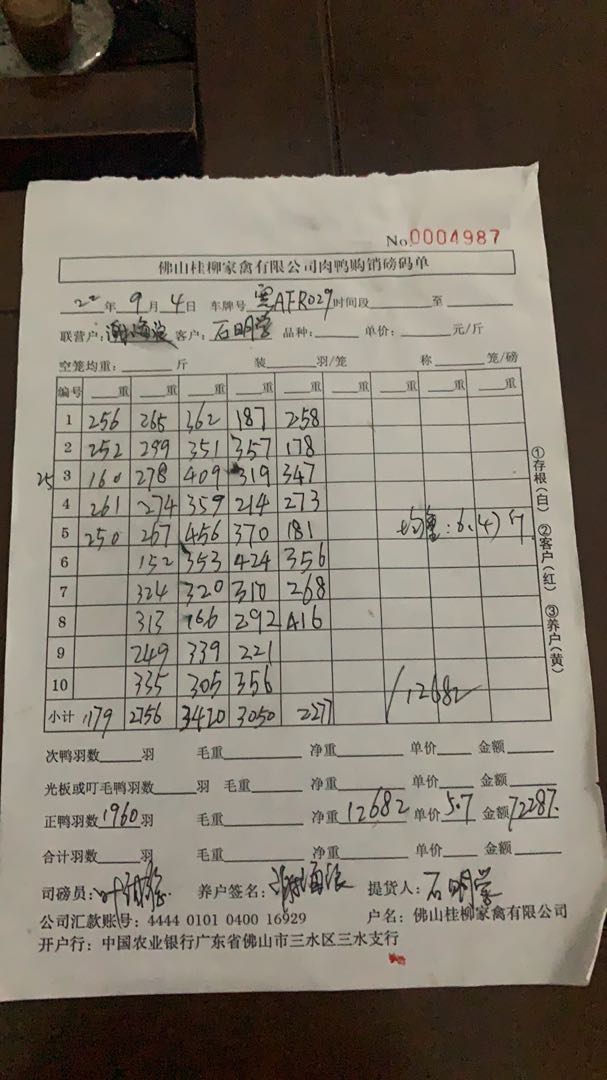 No.0004987
佛山桂柳家禽有限公司肉鸭购销磅码单
22年9月4日 车牌号 粤AFR029 时间段____至____
联营户: 谢海浪 客户: 石明学 品种:____ 单价:____元/斤
空笼均重:____斤 装____羽/笼 称____笼/磅
编号 __重 __重 __重 __重 __重 __重 __重 __重
1 256 265 362 187 258
2 252 299 351 357 178
25 3 160 278 409 319 347
4 261 274 359 214 273
5 250 267 456 370 181 均重:6.47斤
6 152 353 424 356
7 324 320 310 268
8 313 166 292 416
9 249 339 221
10 335 305 356 12682
小计 1179 2756 3420 3050 2277
①存根(白) ②客户(红) ③养户(黄)
次鸭羽数____羽 毛重____ 净重____ 单价____ 金额____
光板或叮毛鸭羽数____羽 毛重____ 净重____ 单价____ 金额____
正鸭羽数1960羽 毛重____ 净重12682 单价5.7 金额72287.
合计羽数____羽 毛重____ 净重____ 单价____ 金额____
司磅员: 养户签名: 谢海浪 提货人: 石明学
公司汇款账号: 4444 0101 0400 16929 户名: 佛山桂柳家禽有限公司
开户行: 中国农业银行广东省佛山市三水区三水支行